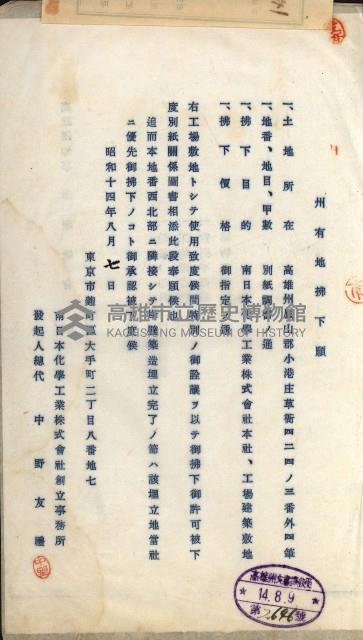 州有地拂下願
一、土地所在　高雄州鳳山郡小港庄草衙四二四ノ三番外四筆
一、地番、地目、甲數　別紙調書ノ通
一、拂下目的　南日本化學工業株式會社本社、工場建築敷地
一、拂下價格　御指定ノ通
右工場敷地トシテ使用致度候間特別ノ御詮議ヲ以テ御拂下御許可被下
度別紙關係圖書相添此段奉願候也
追而本地番西北部ニ隣接シ岸壁築造埋立完了ノ節ハ該埋立地當社
ニ優先御拂下ノコト御承認被下度候
昭和十四年八月七日
東京市麹町區大手町二丁目八番地七
南日本化學工業株式會社創立事務所
發起人總代　中野友禮
高雄市立歷史博物館
KAOHSIUNG MUSEUM OF HISTORY
14.8.9
第2646號